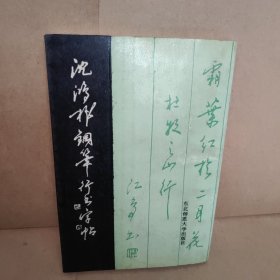 沈鸿根钢笔行书字帖
霜葉红於二月花
杜牧之山行
江鸟书
东北师范大学出版社